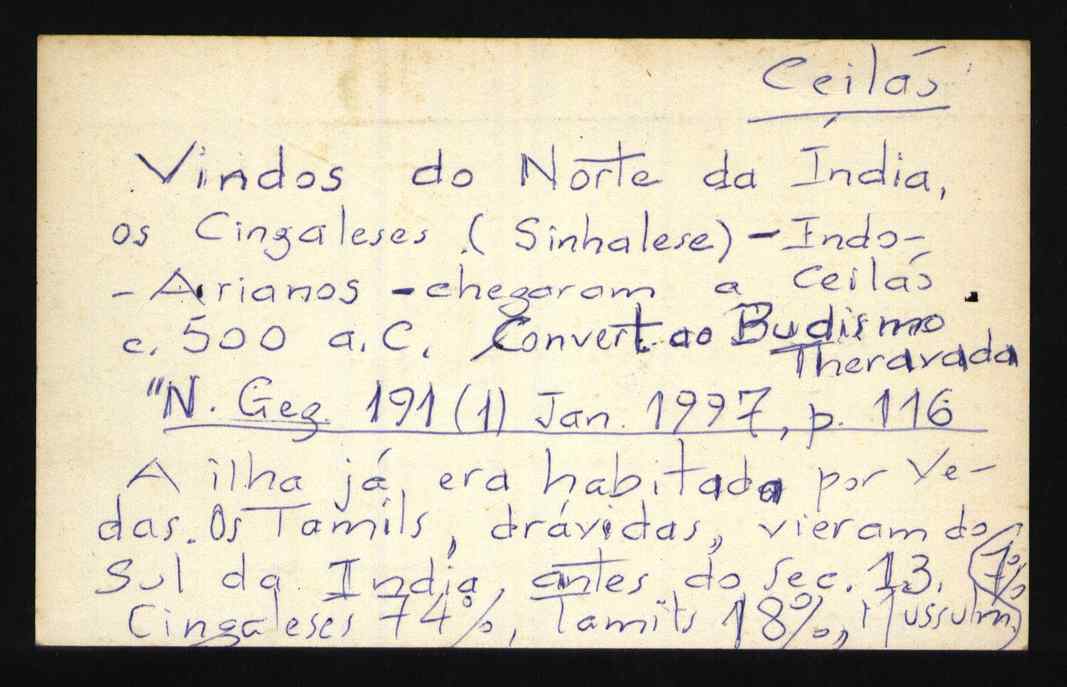 Ceilão
Vindos do Norte da Índia,
os Cingaleses (Sinhalese) - Indo-
- Arianos - chegaram a Ceilão
c. 500 a.C. Convert. ao Budismo
Theravada
"N. Geg. 191 (1) Jan. 1997, p. 116
A ilha já era habitada por Ve-
das. Os Tamils, drávidas, vieram do
Sul da Índia, antes do sec. 13. 7%
Cingaleses 74%, Tamils 18%, Mussulm.